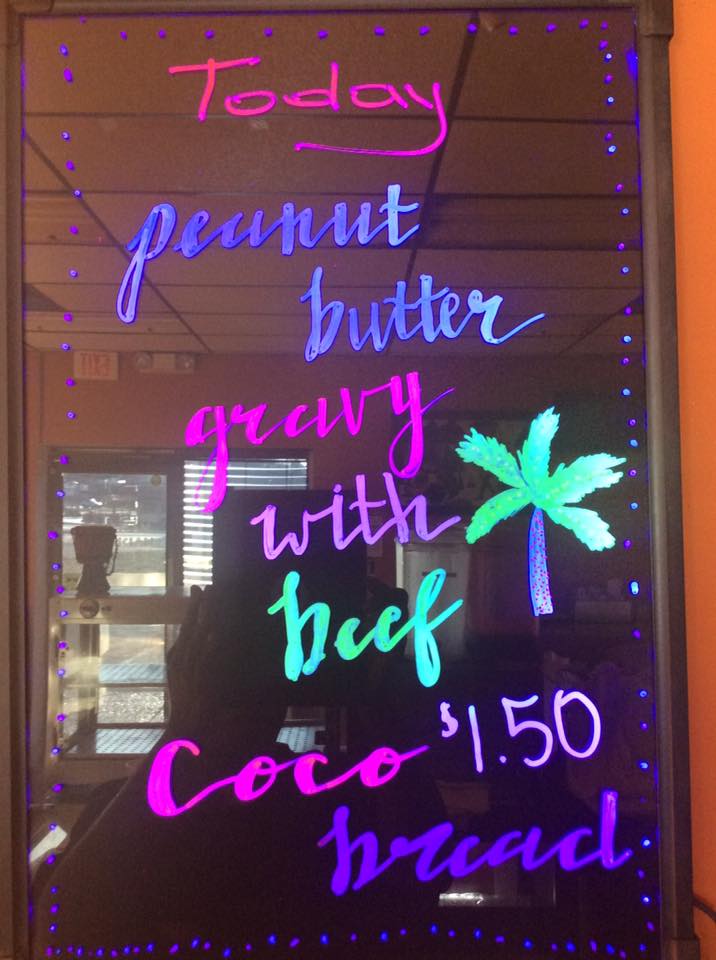 Today
peanut
butter
gravy
with
beef
$1.50
Coco
bread
EXIT